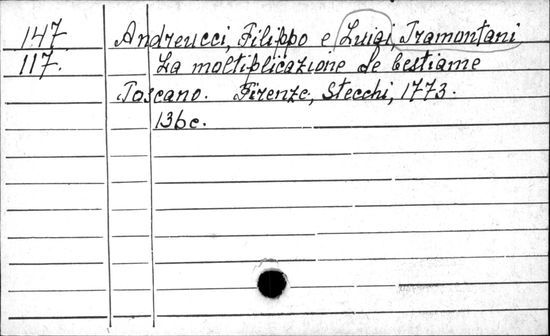 147 Andreucci, Filippo e Luigi, Tramontani
117. La moltiplicazione de bestiame
Toscano. Firenze, Stecchi, 1773.
136c.